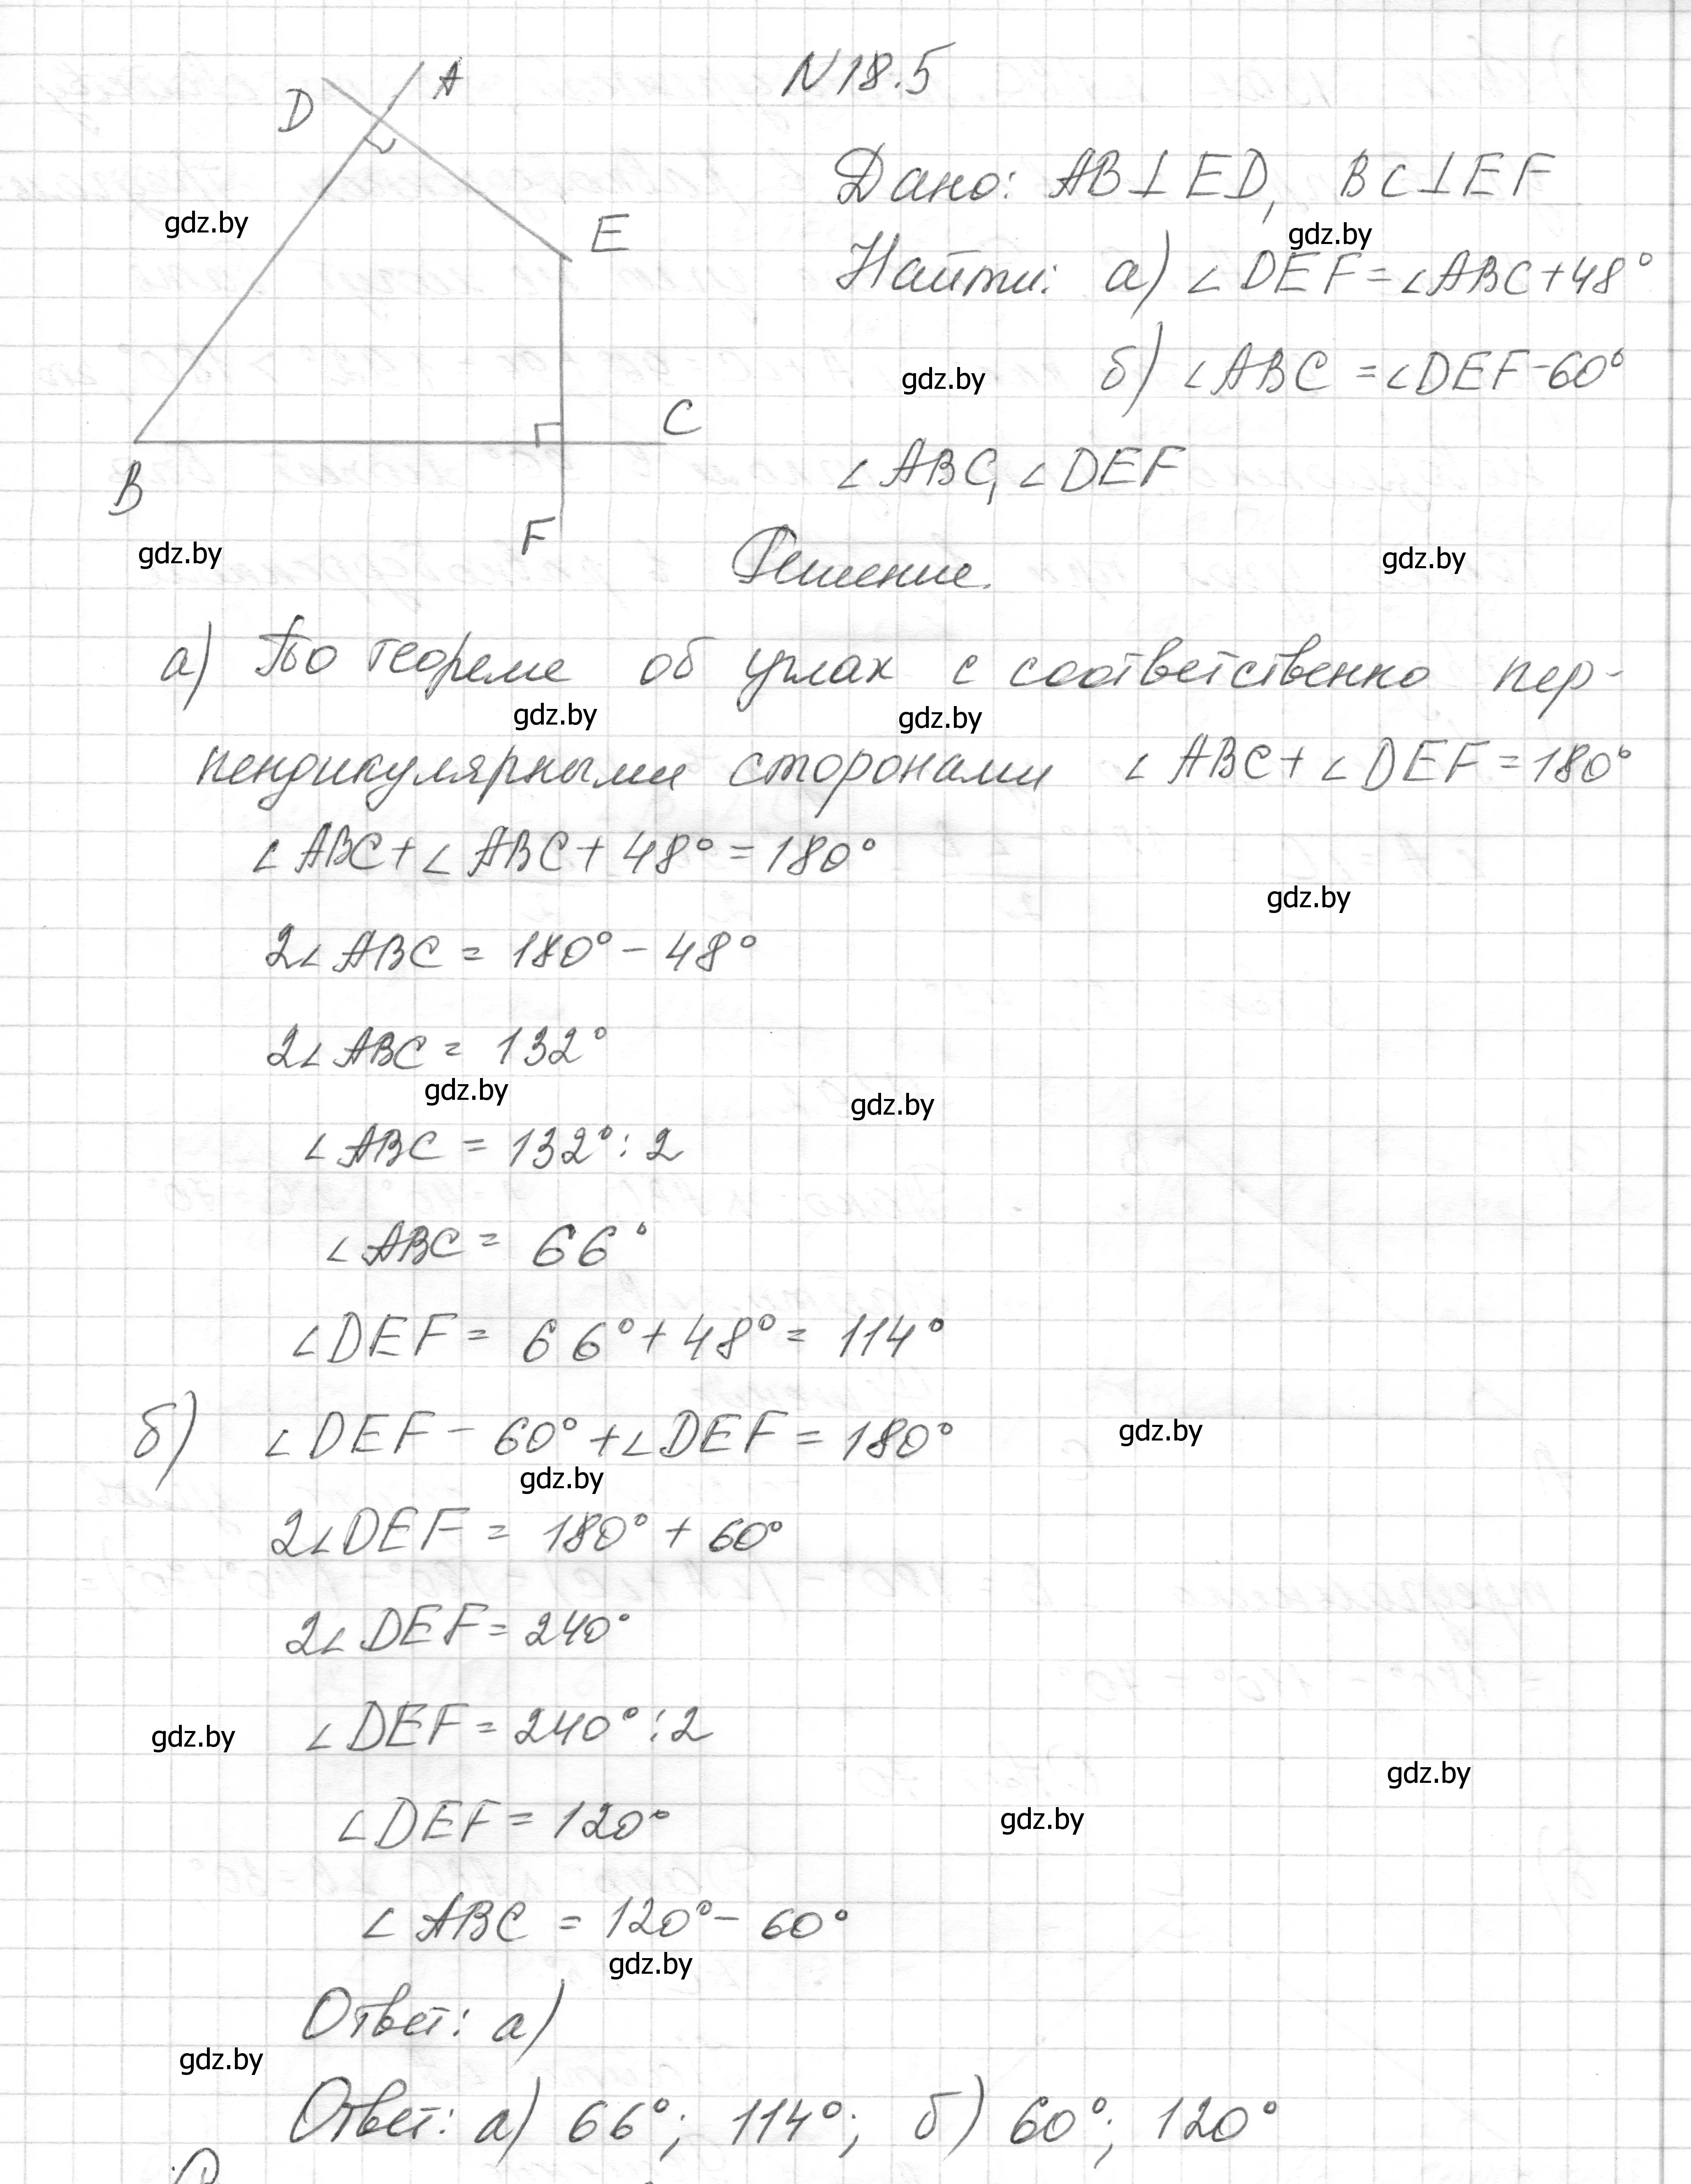 N 18.5
D A
Дано: AB⊥ED, BC⊥EF
gdz.by
E
gdz.by
Найти: а) ∠DEF=∠ABC+48°
gdz.by
б) ∠ABC=∠DEF-60°
C
∠ABC, ∠DEF
B
F
gdz.by
Решение.
gdz.by
а) По теореме об углах с соответственно пер-
gdz.by gdz.by
пендикулярными сторонами ∠ABC+∠DEF=180°
∠ABC+∠ABC+48°=180°
gdz.by
2∠ABC=180°-48°
2∠ABC=132°
gdz.by gdz.by
∠ABC=132°:2
∠ABC=66°
∠DEF=66°+48°=114°
б) ∠DEF-60°+∠DEF=180°
gdz.by
gdz.by
2∠DEF=180°+60°
2∠DEF=240°
∠DEF=240°:2
gdz.by
gdz.by
∠DEF=120°
gdz.by
∠ABC=120°-60°
gdz.by
Ответ: а)
gdz.by
Ответ: а) 66°; 114°; б) 60°; 120°